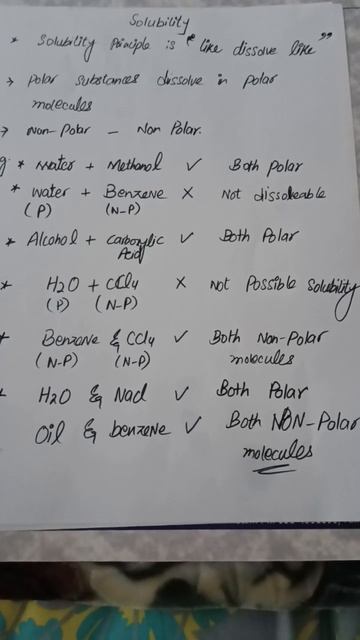 Solubility
* Solubility Principle is "like dissolve like"
→ Polar substances dissolve in polar
molecules
→ Non-Polar – Non Polar.
g * Water + Methanol ✓ Both polar
* Water + Benzene × Not dissoleable
(P) (N-P)
* Alcohol + carboxylic ✓ Both Polar
Acid
* H2O + CCl4 × Not Possible Solubility
(P) (N-P)
+ Benzene & CCl4 ✓ Both Non-Polar
(N-P) (N-P) molecules
+ H2O & Nacl ✓ Both Polar
Oil & benzene ✓ Both NON-Polar
molecules